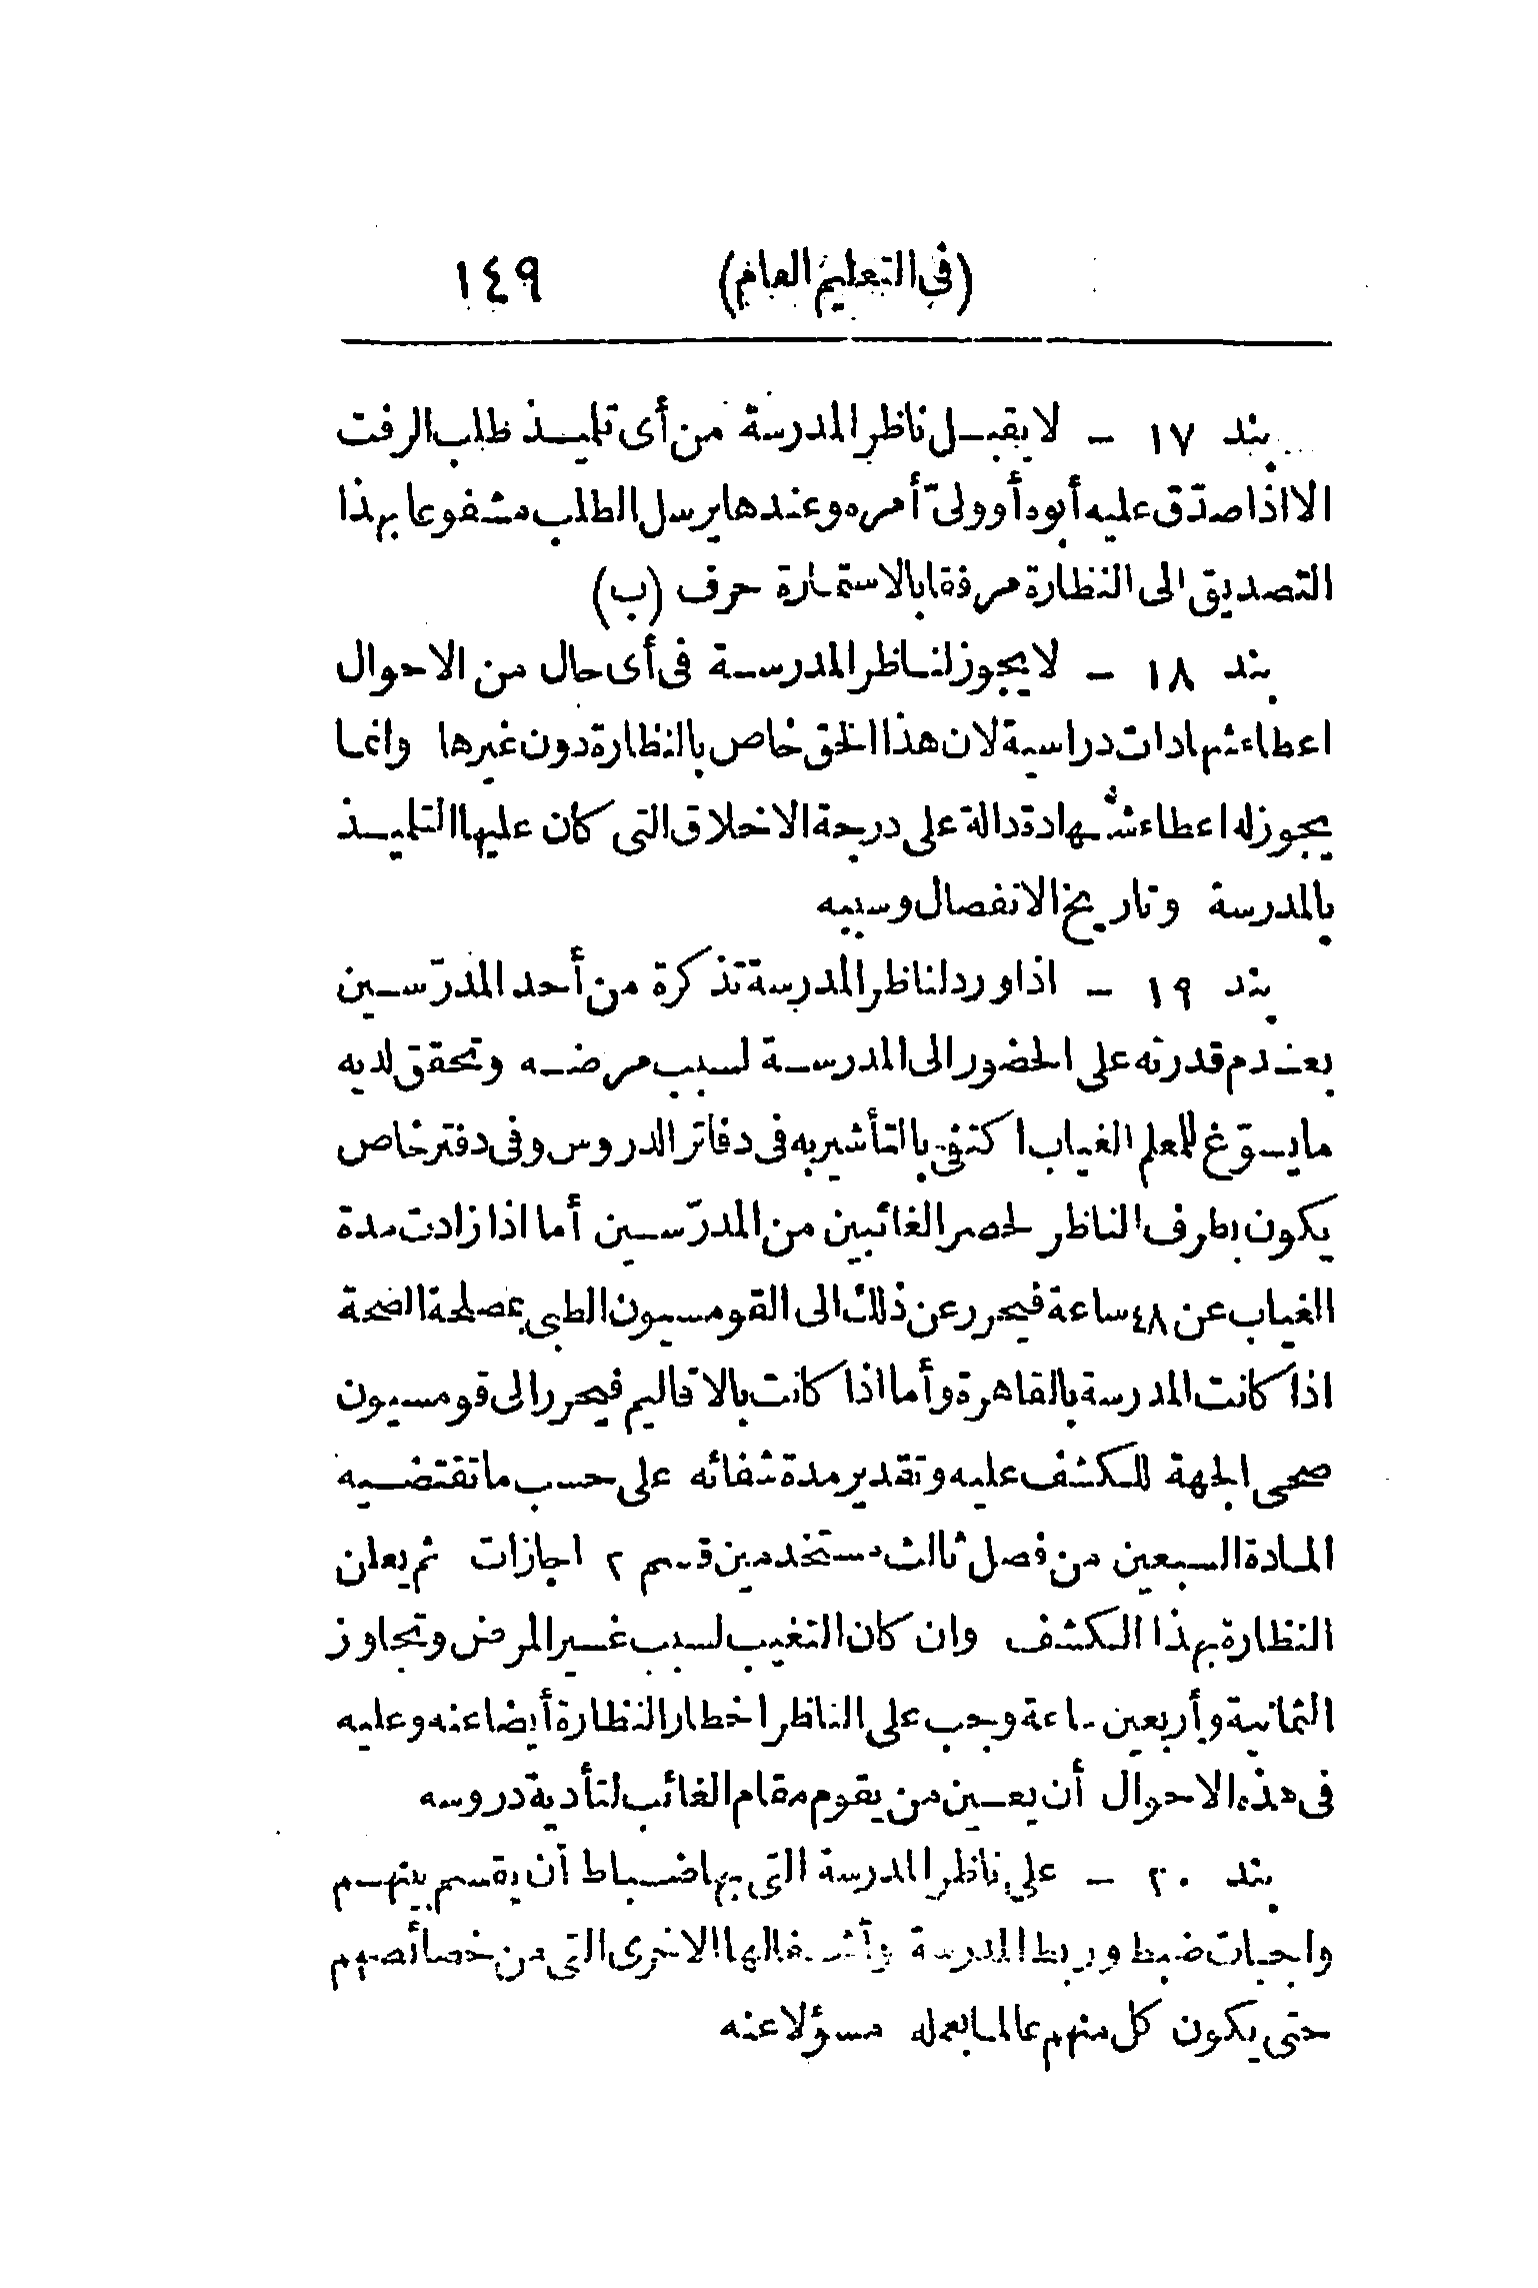 (فى التعليم العام) ١٤٩
بند ١٧ – لا يقبل ناظر المدرسة من أى تلميذ طلب الرفت
الا اذا صدّق عليه أبوه أو ولىّ أمره وعندها يرسل الطلب مشفوعا بهذا
التصديق الى النظارة مرفقا بالاستمارة حرف (ب)
بند ١٨ – لا يجوز لناظر المدرسة فى أى حال من الاحوال
اعطاء شهادات دراسية لان هذا الحق خاص بالنظارة دون غيرها وانما
يجوز له اعطاء شهادة دالة على درجة الاخلاق التى كان عليها التلميذ
بالمدرسة وتاريخ الانفصال وسببه
بند ١٩ – اذا ورد لناظر المدرسة تذكرة من أحد المدرّسين
بعدم قدرته على الحضور الى المدرسة لسبب مرضه وتحقق لديه
ما يسوّغ للمعلم الغياب اكتفى بالتأشير به فى دفاتر الدروس وفى دفتر خاص
يكون بطرف الناظر لحصر الغائبين من المدرّسين أما اذا زادت مدة
الغياب عن ٤٨ ساعة فيحرر عن ذلك الى القومسيون الطبى بمصلحة الصحة
اذا كانت المدرسة بالقاهرة وأما اذا كانت بالاقاليم فيحرر الى قومسيون
صحى الجهة للكشف عليه وتقدير مدة شفائه على حسب ما تقتضيه
المادة السبعين من فصل ثالث مستخدمين قسم ٢ اجازات ثم يعلن
النظارة بهذا الكشف وان كان التغيب لسبب غير المرض وتجاوز
الثمانية وأربعين ساعة وجب على الناظر اخطار النظارة أيضا عنه وعليه
فى هذه الاحوال أن يعين من يقوم مقام الغائب لتأدية دروسه
بند ٢٠ – على ناظر المدرسة التى بها ضباط أن يقسم بينهم
واجبات ضبط وربط المدرسة وأشغالها الاخرى التى من خصائصهم
حتى يكون كل منهم عالما بعمله مسؤلا عنه